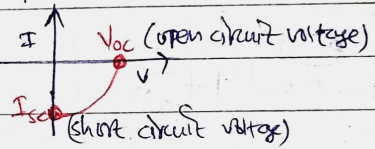 I
Voc (open circuit voltage)
V
Isc
(short circuit voltage)